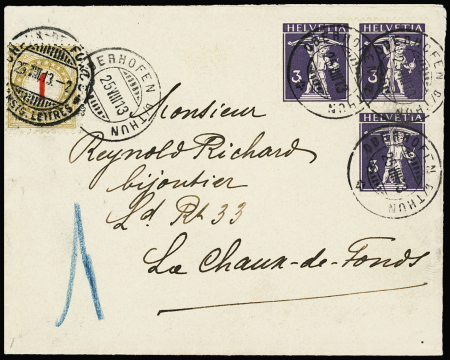 HELVETIA HELVETIA
3 3
HELVETIA
3
1
OBERHOFEN B/THUN
25.VIII.13
OBERHOFEN B/THUN
OBERHOFEN B/THUN
OBERHOFEN B/THUN
25.VIII.13
LETTRES
Monsieur
Reynold Richard
bijoutier
Ld Rt 33
La Chaux-de-Fonds
1